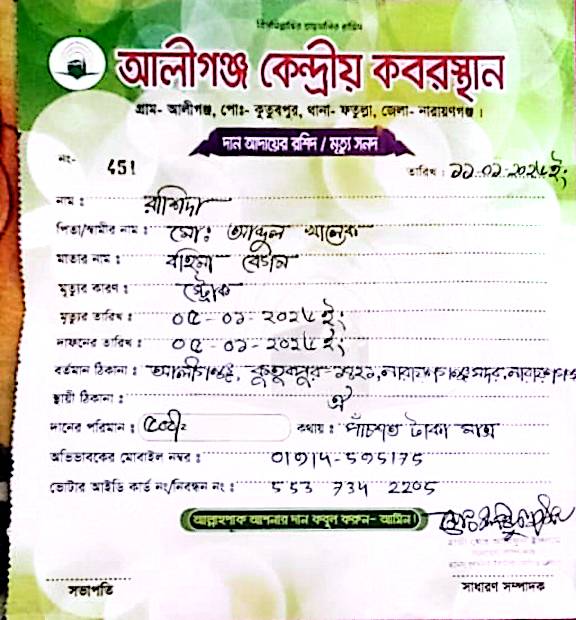 বিসমিল্লাহির রাহমানির রাহিম
আলীগঞ্জ কেন্দ্রীয় কবরস্থান
গ্রাম- আলীগঞ্জ, পোঃ- কুতুবপুর, থানা- ফতুল্লা, জেলা- নারায়ণগঞ্জ।
দান আদায়ের রশিদ / মৃত্যু সনদ
নং- 451 তারিখ : ১১-০১-২০২৪ইং
নাম : রাশিদা
পিতা/স্বামীর নাম : মোঃ আব্দুল খালেক
মাতার নাম : রহিমা বেগম
মৃত্যুর কারণ : স্ট্রোক
মৃত্যুর তারিখ : ০৫-০১-২০২৪ইং
দাফনের তারিখ : ০৫-০১-২০২৪ইং
বর্তমান ঠিকানা : আলীগঞ্জ, কুতুবপুর-১৪২১, নারায়ণগঞ্জ সদর, নারায়ণগঞ্জ
স্থায়ী ঠিকানা : ঐ
দানের পরিমান : ৫০০/= কথায় : পাঁচশত টাকা মাত্র
অভিভাবকের মোবাইল নম্বর : 01914-595175
ভোটার আইডি কার্ড নং/নিবন্ধন নং : 553 734 2205
আল্লাহপাক আপনার দান কবুল করুন- আমিন!
সভাপতি সাধারণ সম্পাদক